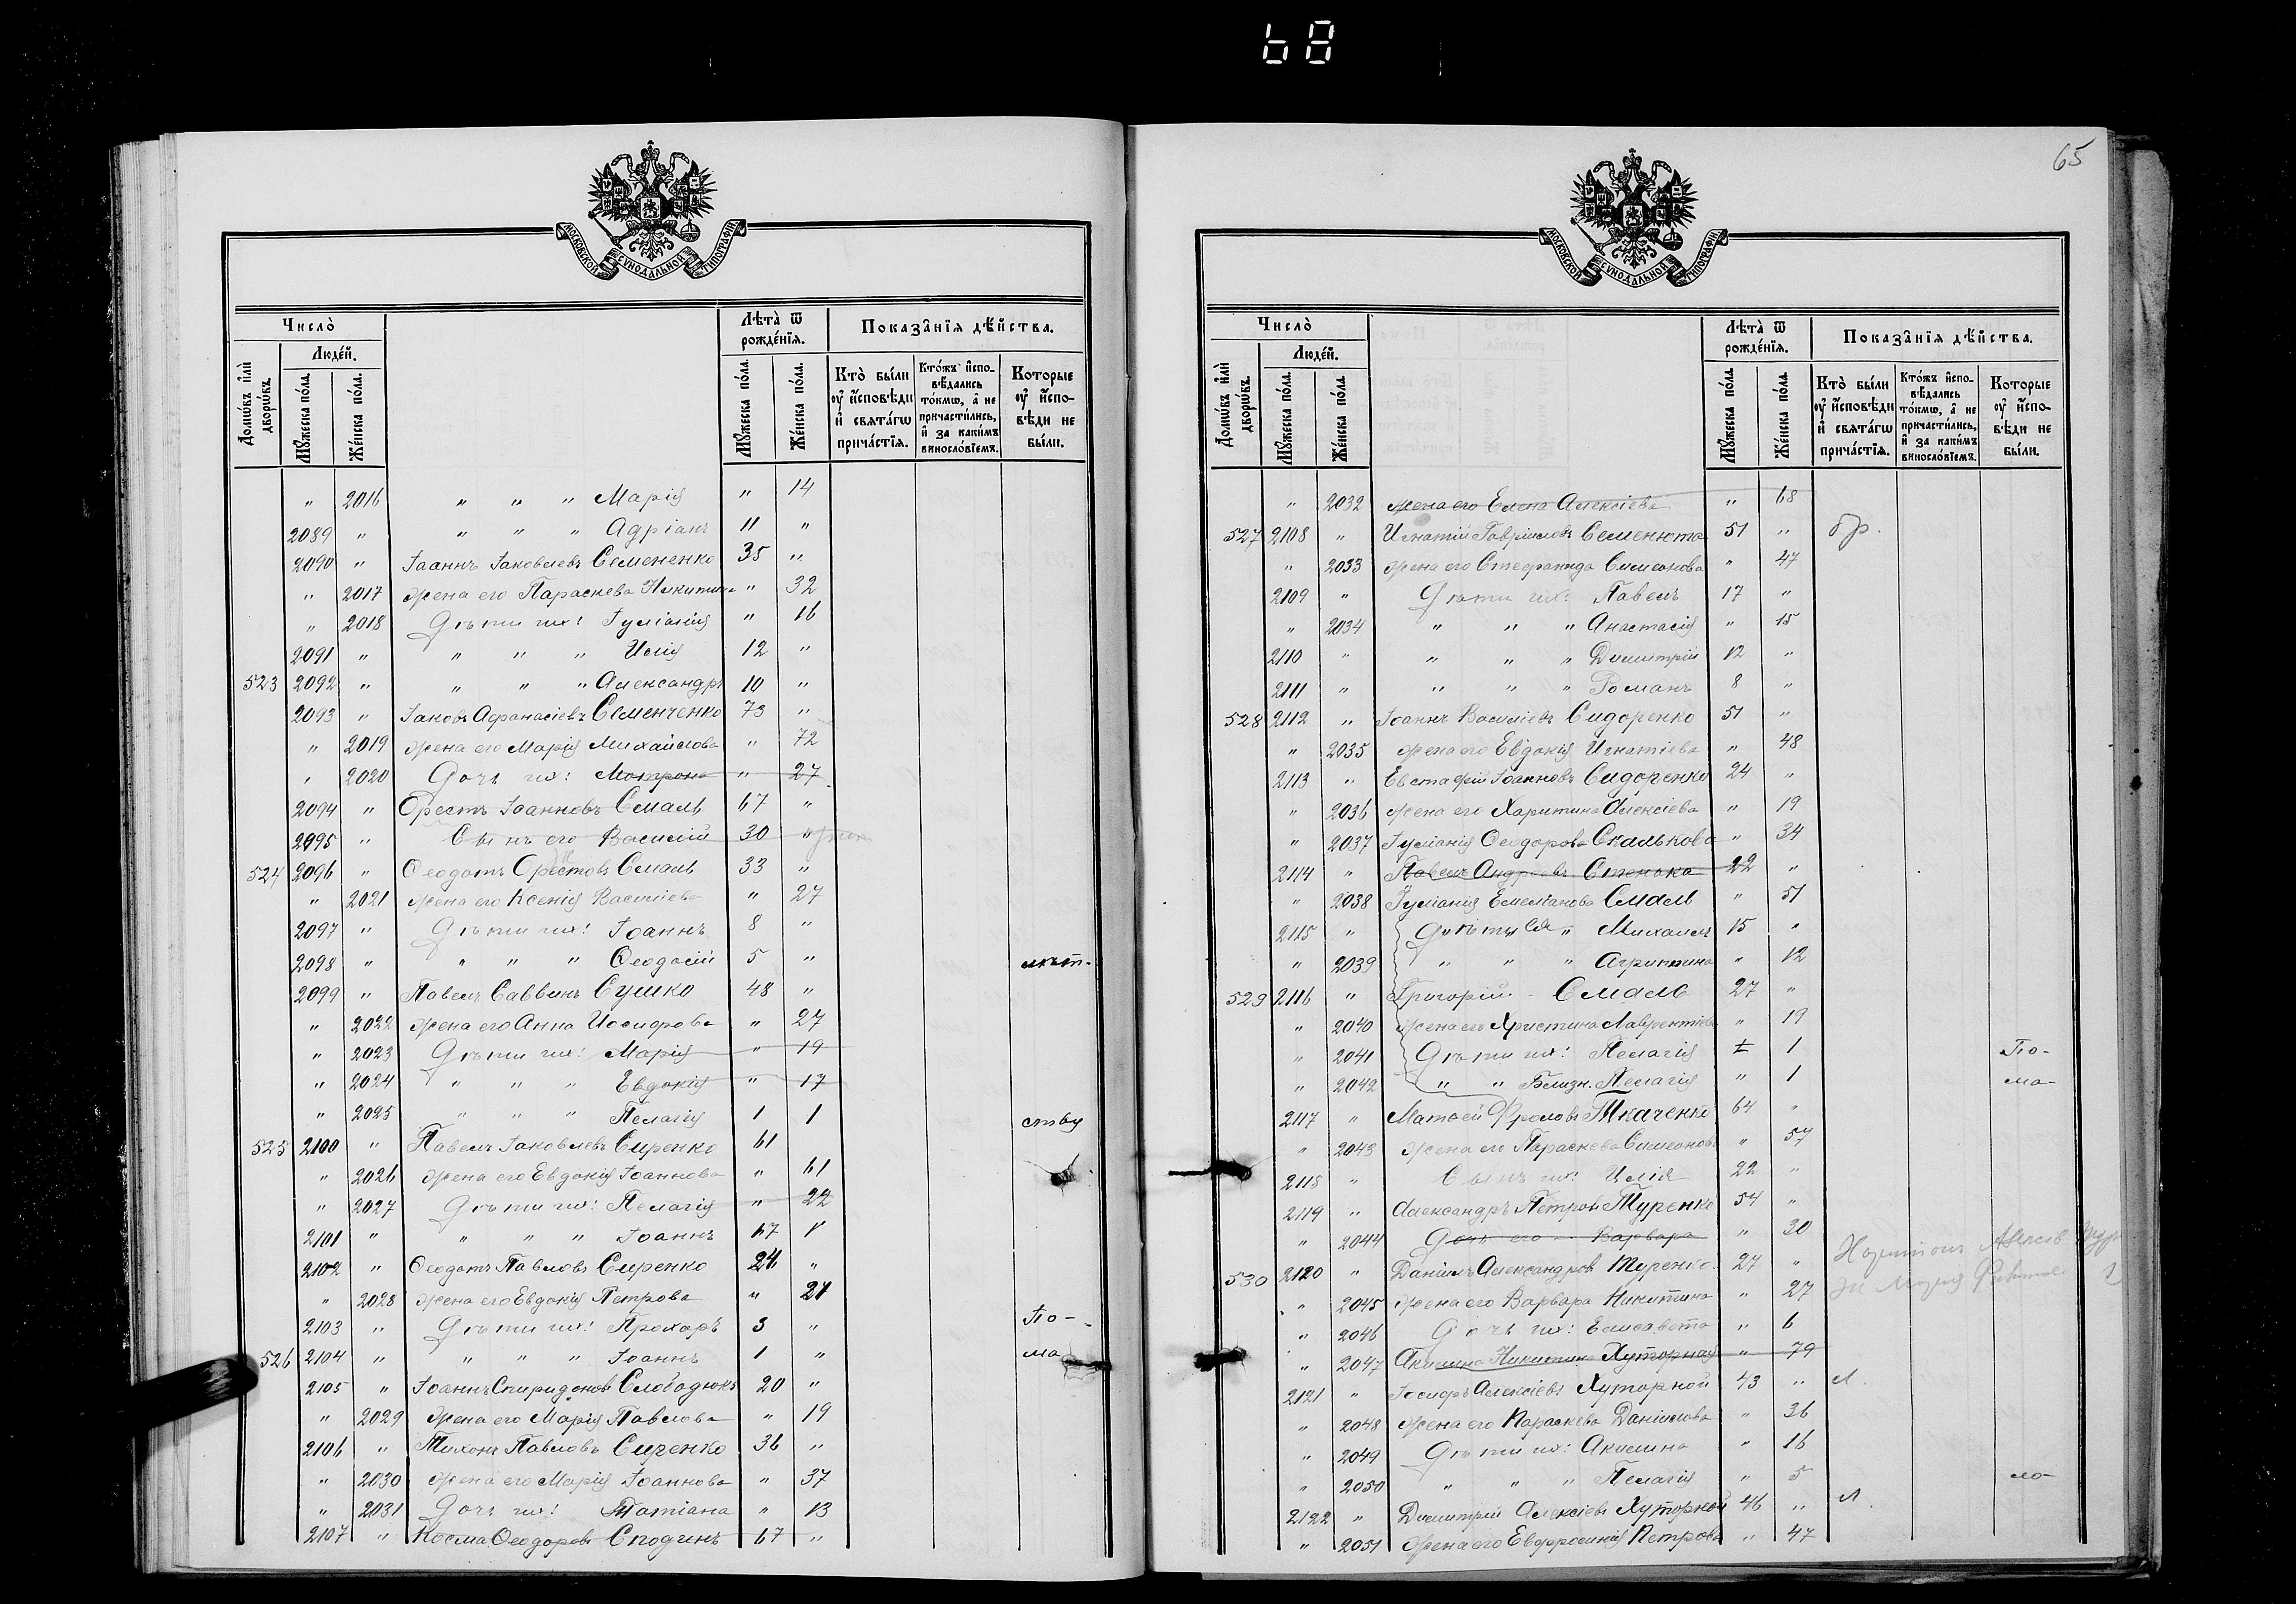 68
МОСКОВСКОЙ СѴНОДАЛЬНОЙ ТИПОГРАФІИ
Число̀
Люде́й.
Домѡ́въ и҆лѝ дворѡ́въ.
Мꙋ́жеска по́ла.
Же́нска по́ла.
Лѣта̀ ѿ рожде́нїѧ.
Мꙋ́жеска по́ла.
Же́нска по́ла.
Показа̑нїѧ дѣ́йства.
Кто̀ бы́ли ᲂу҆ и҆́сповѣди и҆ свѧта́гѡ прича́стїѧ.
Кто́жъ и҆спо-вѣ́дались то́кмѡ, а҆ не причасти́лись, и҆ за каки́мъ виносло́вїемъ.
Которые ᲂу҆ и҆спо-вѣди не бы́ли.
" 2016 " " " Марія " 14
2089 " " " " Адріанъ 11 "
2090 " Іоаннъ Іаковлевъ Семененко 35 "
" 2017 жена его Параскева Никитина " 32
" 2018 Дѣти ихъ: Іуліанія " 16
2091 " " " " Илія 12 "
523 2092 " " " " Александръ 10 "
2093 " Іаковъ Афанасіевъ Семенченко 73 "
" 2019 жена его Марія Михайлова " 72
" 2020 Дочь ихъ: Матрона " 27
2094 " Орестъ Іоанновъ Смаль 67 "
2095 " Сынъ его Василій 30 "
524 2096 " Ѳеодотъ Орестовъ Смаль 33 "
" 2021 жена его Ксенія Василіева " 27
2097 " Дѣти ихъ: Іоаннъ 8 "
2098 " " " " Ѳеодосій 5 " лѣт-
2099 " Павелъ Саввинъ Сушко 48 "
" 2022 жена его Анна Іосифова " 27
" 2023 Дѣти ихъ: Марія " 19
" 2024 " " " Евдокія " 17
" 2025 " " " Пелагія 1 1 ству
525 2100 " Павелъ Іаковлевъ Сиренко 61
" 2026 жена его Евдокія Іоаннова " 61
" 2027 Дѣти ихъ: Пелагія " 22
2101 " " " " Іоаннъ 17
2102 " Ѳеодотъ Павловъ Сиренко 24 "
" 2028 жена его Евдокія Петрова " 21
2103 " Дѣти ихъ: Прохоръ 3 " По-
526 2104 " " " " Іоаннъ 1 " ма
2105 " Іоаннъ Спиридоновъ Слободюкъ 20 "
" 2029 Жена его Марія Павлова " 19
2106 " Тихонъ Павловъ Сиренко 36 "
" 2030 жена его Марія Іоаннова " 37
" 2031 Дочь ихъ: Татіана " 13
2107 " Косма Ѳеодоровъ Сподинъ 67 "
65
МОСКОВСКОЙ СѴНОДАЛЬНОЙ ТИПОГРАФІИ
Число̀
Люде́й.
Домѡ́въ и҆лѝ дворѡ́въ.
Мꙋ́жеска по́ла.
Же́нска по́ла.
Лѣта̀ ѿ рожде́нїѧ.
Мꙋ́жеска по́ла.
Же́нска по́ла.
Показа̑нїѧ дѣ́йства.
Кто̀ бы́ли ᲂу҆ и҆́сповѣди и҆ свѧта́гѡ прича́стїѧ.
Кто́жъ и҆спо-вѣ́дались то́кмѡ, а҆ не причасти́лись, и҆ за каки́мъ виносло́вїемъ.
Которые ᲂу҆ и҆спо-вѣди не бы́ли.
" 2032 жена его Елена Алексіева " 68
527 2108 " Игнатій Гавріиловъ Семенюта 51 " бр.
" 2033 жена его Стефанида Симеонова " 47
2109 " Дѣти ихъ: Павелъ 17 "
" 2034 " " " Анастасія " 15
2110 " " " " Димитрій 12 "
2111 " " " " Романъ 8 "
528 2112 " Іоаннъ Василіевъ Сидоренко 51 "
" 2035 жена его Евдокія Игнатіева " 48
2113 " Евстафій Іоанновъ Сидоренко 24 "
" 2036 жена его Харитина Алексіева " 19
" 2037 Іуліанія Ѳеодорова Скалькова " 34
2114 " Павелъ Андреевъ 22 "
" 2038 Іуліанія Емеліанова Смаль " 51
2115 " Дѣти ея " Михаилъ 15 "
" 2039 " " " Агриппина " 12
529 2116 " Григорій - Смаль 27 "
" 2040 жена его Христина Лаврентіева " 19
" 2041 Дѣти ихъ: Пелагія 1 По-
" 2042 " " Близн. Пелагія " 1 ма-
2117 " Матѳей Фроловъ Ткаченко 64 "
" 2043 жена его Параскева Симеонова " 57
2118 " Сынъ ихъ: Илія 22 "
2119 " Александръ Петровъ Туренко 54 "
" 2044 Дочь его Варвара " 30
530 2120 " Даніилъ Александровъ Туренко. 27 "
" 2045 жена его Варвара Никитина " 27
" 2046 Дочь ихъ: Елисавета " 6
" 2047 Акилина Никитина Хуторная " 79
2121 " Іосифъ Алексіевъ Хуторной 43 " л.
" 2048 жена его Параскева Даніилова " 36
" 2049 Дѣти ихъ: Акилина " 16
" 2050 " " " Пелагія " 5 ло-
2122 " Димитрій Алексіевъ Хуторной 46 " л.
" 2051 жена его Евфросинія Петрова " 47